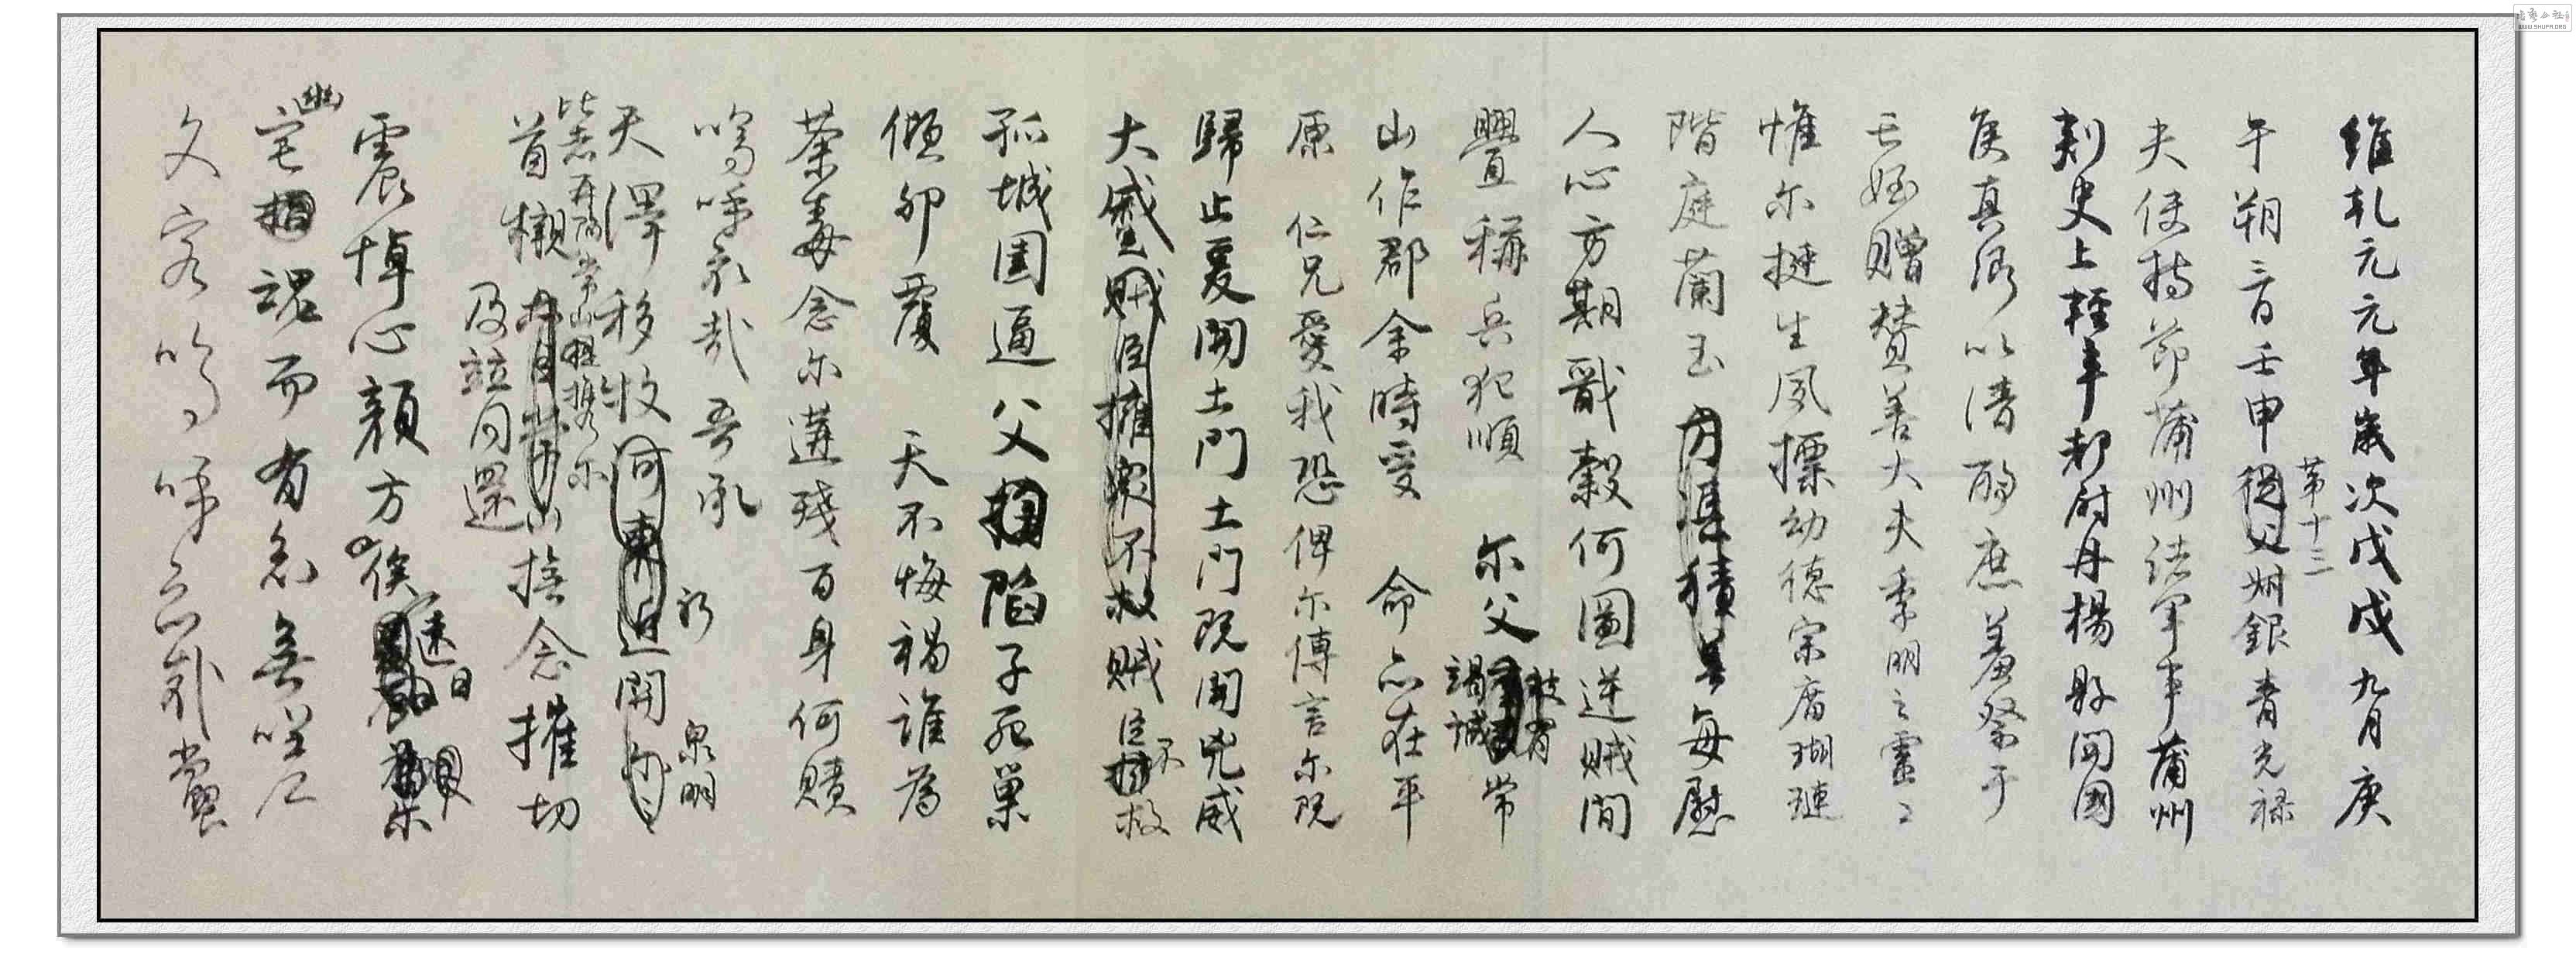 維乹元元年歲次戊戌九月庚
午朔三日壬申
第十三
從父
叔銀青光禄
夫使持節蒲州諸軍事蒲州
刺史上輕車都尉丹楊縣開國
侯真卿以清酌庶羞祭于
亡姪贈贊善大夫季明之靈曰
惟尔挺生夙標幼德宗廟瑚璉
階庭蘭玉方憑積善每慰
人心方期戩穀何圖逆賊閒
釁稱兵犯順 尔父
竭誠
常
山作郡余時受 命亦在平
原 仁兄愛我恐俾尔傳言尔既
歸止爰開土門土門既開兇威
大蹙賊臣擁衆不救賊臣
不
救
孤城圍逼父
陷子死巢
傾卵覆 天不悔禍誰為
荼毒念尔遘殘百身何贖
嗚呼哀哉 吾承
天澤移牧河東近
泉明
比者再陷常山
攜尔
開
首櫬
及兹同還
撫念摧切
震悼心顔方俟
遠日
幽
宅
魂而有知無嗟久
客嗚呼哀哉尚饗
WWW.SHUFA.ORG